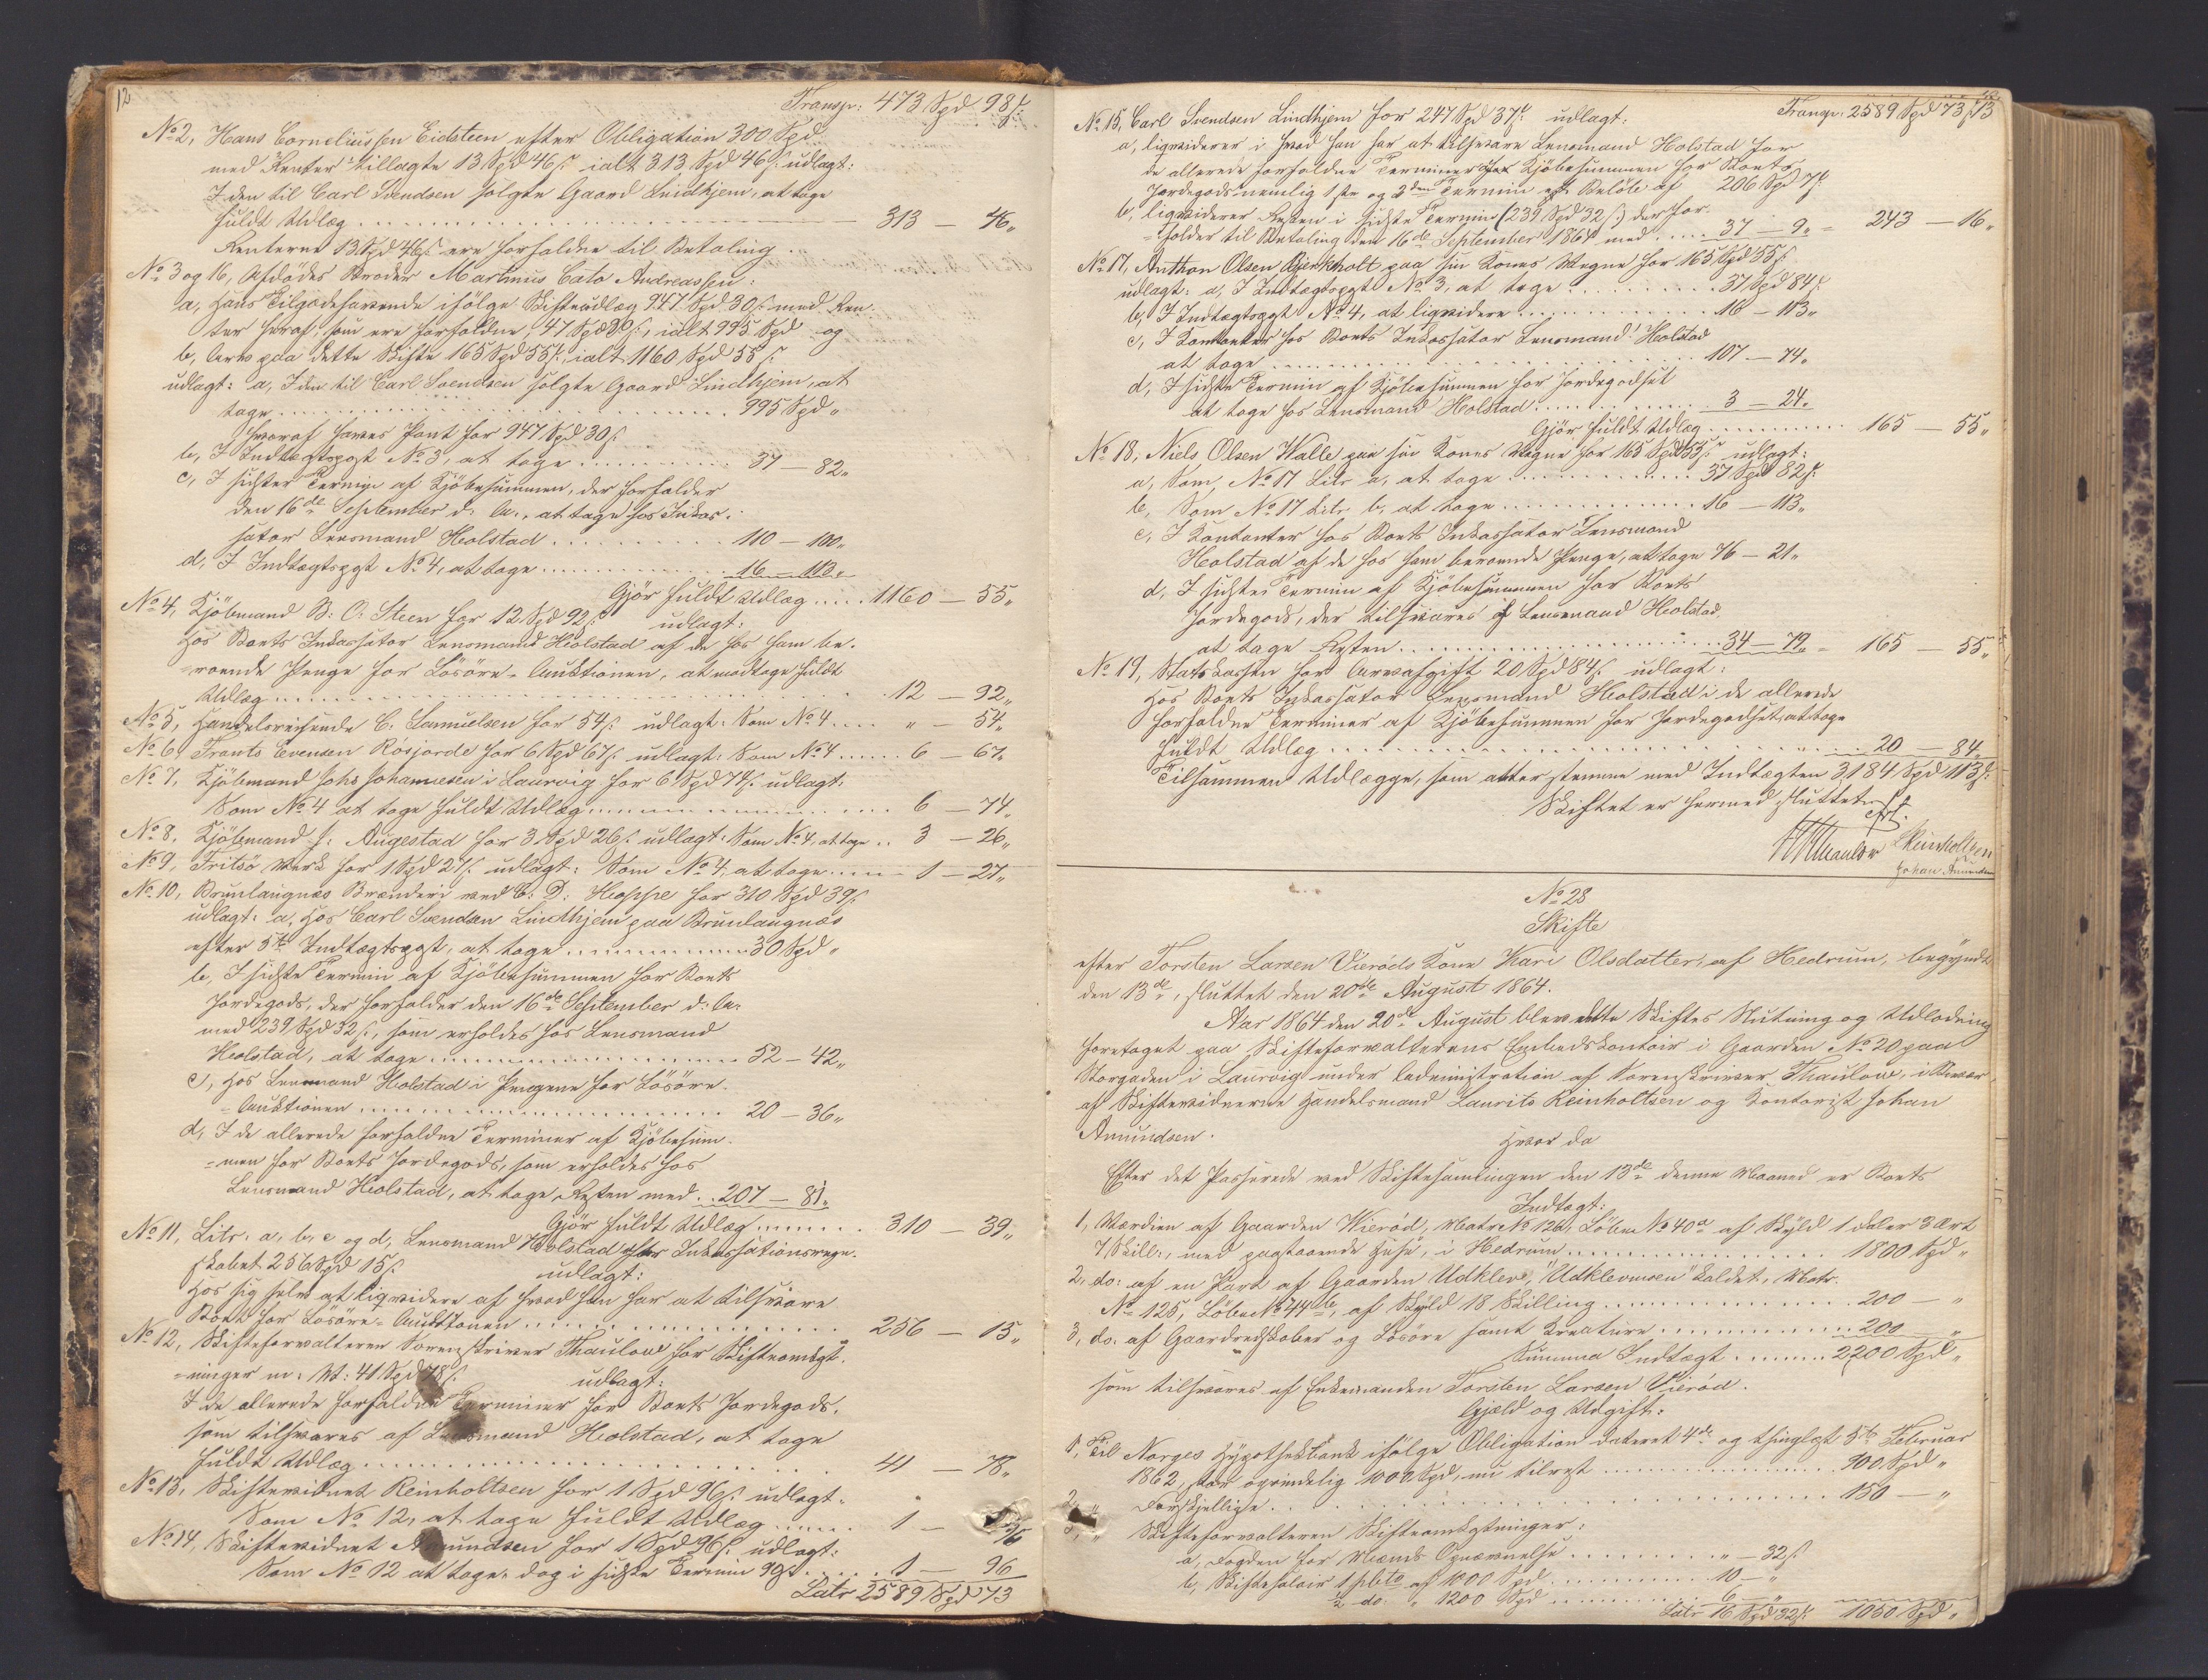 12
Transp: 473 Spd 98 ſ.
No 2, Hans Corneliussen Eidsteen efter Obligation 300 Spd
med Renter tillagte 13 Spd 46 ſ. ialt 313 Spd 46 ſ. udlagt:
I den til Carl Svendsen solgte Gaard Lindhjem, at tage
fuldt Udlæg ........ 313 — 46„
Renterne 13 Spd 46 ſ. ere forfaldne til Betaling.
No 3 og 16, Afdødes Broder Martinus Cato Andreassen:
a, hans Tilgodehavende ifølge Skifteudlæg 947 Spd 30 ſ. med Ren-
ter heraf som ere forfaldne, 47 Spd 90 ſ., ialt 995 Spd og
b, Arv paa dette Skifte 165 Spd 55 ſ., ialt 1160 Spd 55 ſ.
udlagt: a, I den til Carl Svendsen solgte Gaard Lindhjem, at
tage ........ 995 Spd „
hvoraf haves Pant for 947 Spd 30 ſ.
b, I Indtægtspgt No 3, at tage ........ 37 — 82„
c, I sidste Termin af Kjöbesummen, der forfalder
den 16de September d. A., at tage hos Inkas-
sator Lensmand Holstad ........ 110 — 100„
d, I Indtægtspgt No 4, at tage ........ 16 — 113„
Gjör fuldt Udlæg ..... 1160 — 55„
No 4, Kjöbmand B: O: Steen for 12 Spd 92 ſ. udlagt:
hos Boets Inkassator Lensmand Holstad af de hos ham be-
=roende Penge for Lösöre-Auktionen, at modtage fuldt
Udlæg ........ 12 — 92„
No 5, Handelsreisende C. Samuelsen for 54 ſ. udlagt: Som No 4 .... „ — 54„
No 6, Frants Evensen Rösjorde for 6 Spd 67 ſ. udlagt: Som No 4 ...... 6 — 67„
No 7, Kjöbmand Johs Johannesen i Laurvig for 6 Spd 74 ſ. udlagt:
Som No 4 at tage fuldt Udlæg ........ 6 — 74„
No 8, Kjöbmand J: Augestad for 3 Spd 26 ſ. udlagt: Som No 4, at tage .. 3 — 26„
No 9, Fritsö Værk for 1 Spd 27 ſ. udlagt: Som No 4, at tage ...... 1 — 27„
No 10, Brunlaugnæs Brænderi ved C: D: Hoppe for 310 Spd 39 ſ.
udlagt: a, hos Carl Svendsen Lindhjem paa Brunlaugnæs
efter 5te Indtægtspgt, at tage ........ 30 Spd „
b, I sidste Termin af Kjöbesummen for Boets
Jordegods, der forfalder den 16de September d: A:
med 239 Spd 32 ſ., som erholdes hos Lensmand
Holstad, at tage ........ 52 — 42„
c, hos Lensmand Holstad i Pengene for Lösöre-
=Auktionen ........ 20 — 36„
d, I de allerede forfaldne Terminer af Kjöbesum-
=men for Boets Jordegods, som erholdes hos
Lensmand Holstad, at tage Resten med .. 207 — 81„
Gjör fuldt Udlæg ........ 310 — 39„
No 11, Litr: a, b, c og d, Lensmand Holstad efter Inkassationsregn-
skabet 256 Spd 15 ſ. udlagt:
hos sig selv at liqvidere af hvad han har at tilsvare
Boet for Lösöre-Auktionen ........ 256 — 15„
No 12, Skifteforvalteren Sorenskriver Thaulow for Skifteomkost-
=ninger m: V: 41 Spd 78 ſ. udlagt:
I de allerede forfaldne Terminer for Boets Jordegods,
som tilsvares af Lensmand Holstad, at tage
fuldt Udlæg ........ 41 — 78„
No 13, Skiftevidnet Reinholtsen for 1 Spd 96 ſ. udlagt:
Som No 12, at tage fuldt Udlæg ........ 1 — 96
No 14, Skiftevidnet Amundsen for 1 Spd 96 ſ. udlagt:
Som No 12 at tage, dog i sidste Termin ........ 1 — 96
Latr 2589 Spd 73
13
Transp: 2589 Spd 73 ſ.
No 15, Carl Svendsen Lindhjem for 247 Spd 37 ſ. udlagt:
a, liqviderer i hvad han har at tilsvare Lensmand Holstad for
de allerede forfaldne Terminer for Kjöbesummen for Boets
Jordegods nemlig 1ste og 2den Termin et Belöb af 206 Spd 7 ſ.
b, liqviderer Resten i sidste Termin (239 Spd 32 ſ.) der for-
=falder til Betaling den 16de September 1864 med .... 37 — 9„ = 243 — 16„
No 17, Anthon Olsen Bjerkholt paa sin Kones Vegne for 165 Spd 55 ſ.
udlagt: a, I Indtægtspgt No 3, at tage ........ 37 Spd 84 ſ.
b, I Indtægtspgt No 4, at liqvidere ........ 16 — 113„
c, I Kontanter hos Boets Inkassator Lensmand Holstad
at tage ........ 107 — 74„
d, I sidste Termin af Kjöbesummen for Jordegodset
at tage hos Lensmand Holstad ........ 3 — 24„
Gjör fuldt Udlæg ........ 165 — 55„
No 18, Niels Olsen Walle paa sin Kones Vegne for 165 Spd 55 ſ. udlagt:
a, Som No 17 Litr a, at tage ........ 37 Spd 82 ſ.
b, Som No 17 Litr b, at tage ........ 16 — 113„
c, I Kontanter hos Boets Inkassator Lensmand
Holstad af de hos ham beroende Penge, at tage 76 — 21„
d, I sidste Termin af Kjöbesummen for Boets
Jordegods, der tilsvares af Lensmand Holstad
at tage Resten ........ 34 — 79„ = 165 — 55„
No 19, Statskassen for Arveafgift 20 Spd 84 ſ. udlagt:
hos Boets Inkassator Lensmand Holstad i de allerede
forfaldne Terminer af Kjöbesummen for Jordegodset, at tage
fuldt Udlæg ........ 20 — 84
Tilsammen Udlægge, som atter stemme med Indtægten 3184 Spd 113 ſ.
Skiftet er hermed sluttet.
Thaulow LReinholtsen
Johan Amundsen
No 28
Skifte
efter Torsten Larsen Vieröds Kone Kari Olsdatter, af Hedrum, begyndt
den 13de, sluttet den 20de August 1864.
Aar 1864 den 20de August blev dette Skiftes Slutning og Udlodning
foretaget paa Skifteforvalterens Embedskontoir i Gaarden No 20 paa
Storgaden i Laurvig under Administration af Sorenskriver Thaulow, i Overvær
af Skiftevidnerne Handelsmand Laurits Reinholtsen og Kontorist Johan
Amundsen.
Hvor da
Efter det Passerede ved Skiftesamlingen den 13de denne Maaned er Boets
Indtægt:
1, Værdien af Gaarden Wieröd, Matr No 126, Löbe No 40a af Skyld 1 Daler 3 Ort
7 Skill:, med paastaaende Huse, i Hedrum ........ 1800 Spd „
2, do: af en Part af Gaarden Udkleve, "Udklevmoen" kaldet, Matr:
No 125, Löbe No 44b, af Skyld 18 Skilling ........ 200 — „
3, do. af Gaardredskaber og Lösöre samt Kreature ........ 200 „
Summa Indtægt ........ 2200 Spd „
som tilsvares af Enkemanden Torsten Larsen Vieröd.
Gjæld og Udgift:
1, Til Norges Hypothekbank ifølge Obligation dateret 4de og thinglæst 5te Februar
1862, stor oprindelig 1000 Spd, nu tilrest ........ 900 Spd „
2, „ Forskjellige ........ 150 — „
3, „ Skifteforvalteren Skifteomkostninger:
a, Fogden for Mænds Opnævnelse ........ „ — 32 ſ.
b, Skiftesalair 1 pCto af 1000 Spd ........ 10 — „
½ do: „ 1200 Spd ........ 6 — „
Latr 16 Spd 32 ſ. 1050 Spd „